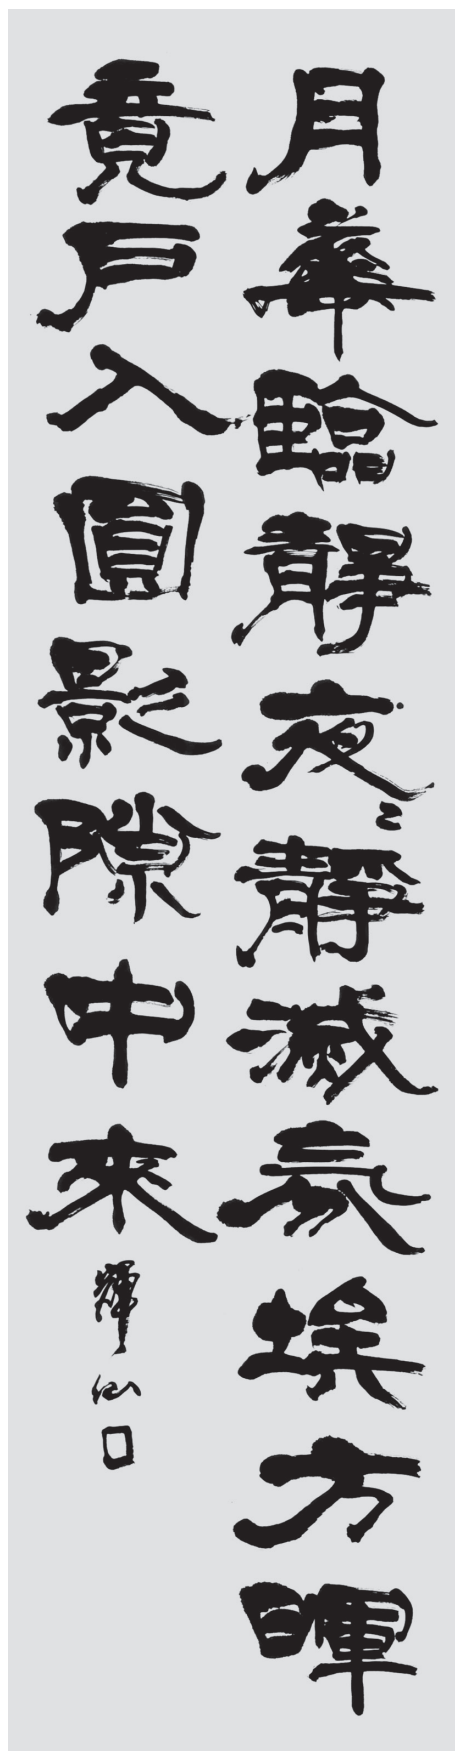 月華臨靜夜〻靜滅氛埃方暉
竟戶入圓影隙中來 輝仙口